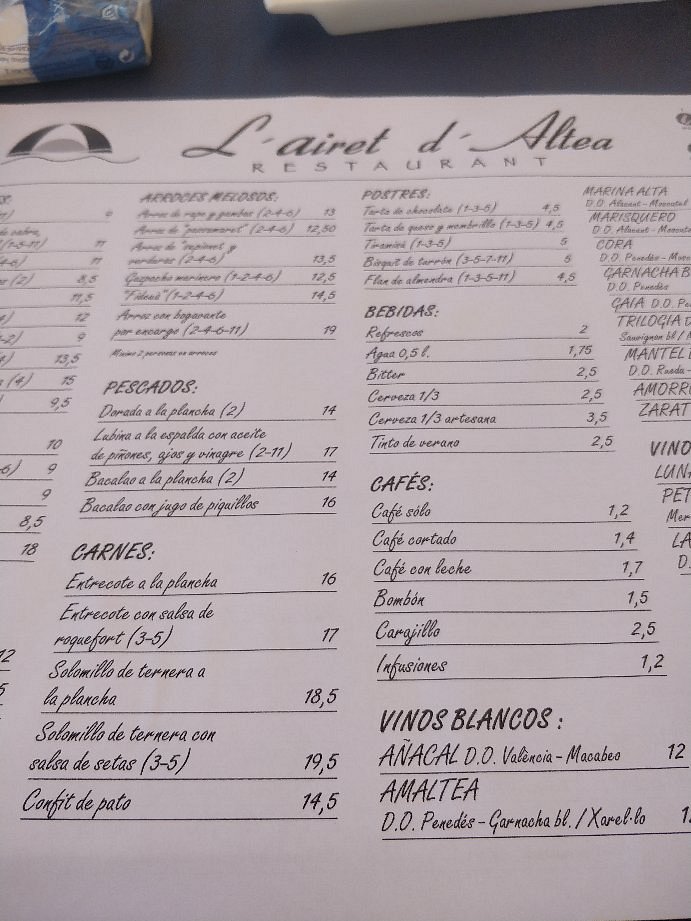 L'airet d'Altea
RESTAURANT
9
11
11
8,5
11,5
12
9
13,5
15
9,5
10
9
9
8,5
18
ARROCES MELOSOS:
Arros de rape y gambas (2-4-6) 13
Arros de "passamaret" (2-4-6) 12,50
Arros de "sepionet y
verduras (2-4-6) 13,5
Gazpacho marinero (1-2-4-6) 12,5
"Fideuà" (1-2-4-6) 14,5
Arros con bogavante
por encargo (2-4-6-11) 19
Mínimo 2 personas en arroces
PESCADOS:
Dorada a la plancha (2) 14
Lubina a la espalda con aceite
de piñones, ajos y vinagre (2-11) 17
Bacalao a la plancha (2) 14
Bacalao con jugo de piquillos 16
CARNES:
Entrecote a la plancha 16
Entrecote con salsa de
roquefort (3-5) 17
Solomillo de ternera a
la plancha 18,5
Solomillo de ternera con
salsa de setas (3-5) 19,5
Confit de pato 14,5
POSTRES:
Tarta de chocolate (1-3-5) 4,5
Tarta de queso y membrillo (1-3-5) 4,5
Tiramisú (1-3-5) 5
Bisquit de turrón (3-5-7-11) 5
Flan de almendra (1-3-5-11) 4,5
BEBIDAS:
Refrescos 2
Agua 0,5 l. 1,75
Bitter 2,5
Cerveza 1/3 2,5
Cerveza 1/3 artesana 3,5
Tinto de verano 2,5
CAFÉS:
Café sólo 1,2
Café cortado 1,4
Café con leche 1,7
Bombón 1,5
Carajillo 2,5
Infusiones 1,2
VINOS BLANCOS:
AÑACAL D.O. València - Macabeo 12
AMALTEA
D.O. Penedés - Garnacha bl. / Xarel·lo
MARINA ALTA
D.O. Alacant - Moscatel
MARISQUERO
D.O. Alacant - Moscatel
CORA
D.O. Penedés - Mosc
GARNACHA B
D.O. Penedés
GAIA D.O. Pe
TRILOGIA D
Sauvignon bl /
MANTEL
D.O. Rueda -
AMORR
ZARAT
VINO
LUNA
PET
Mer
LA
D.